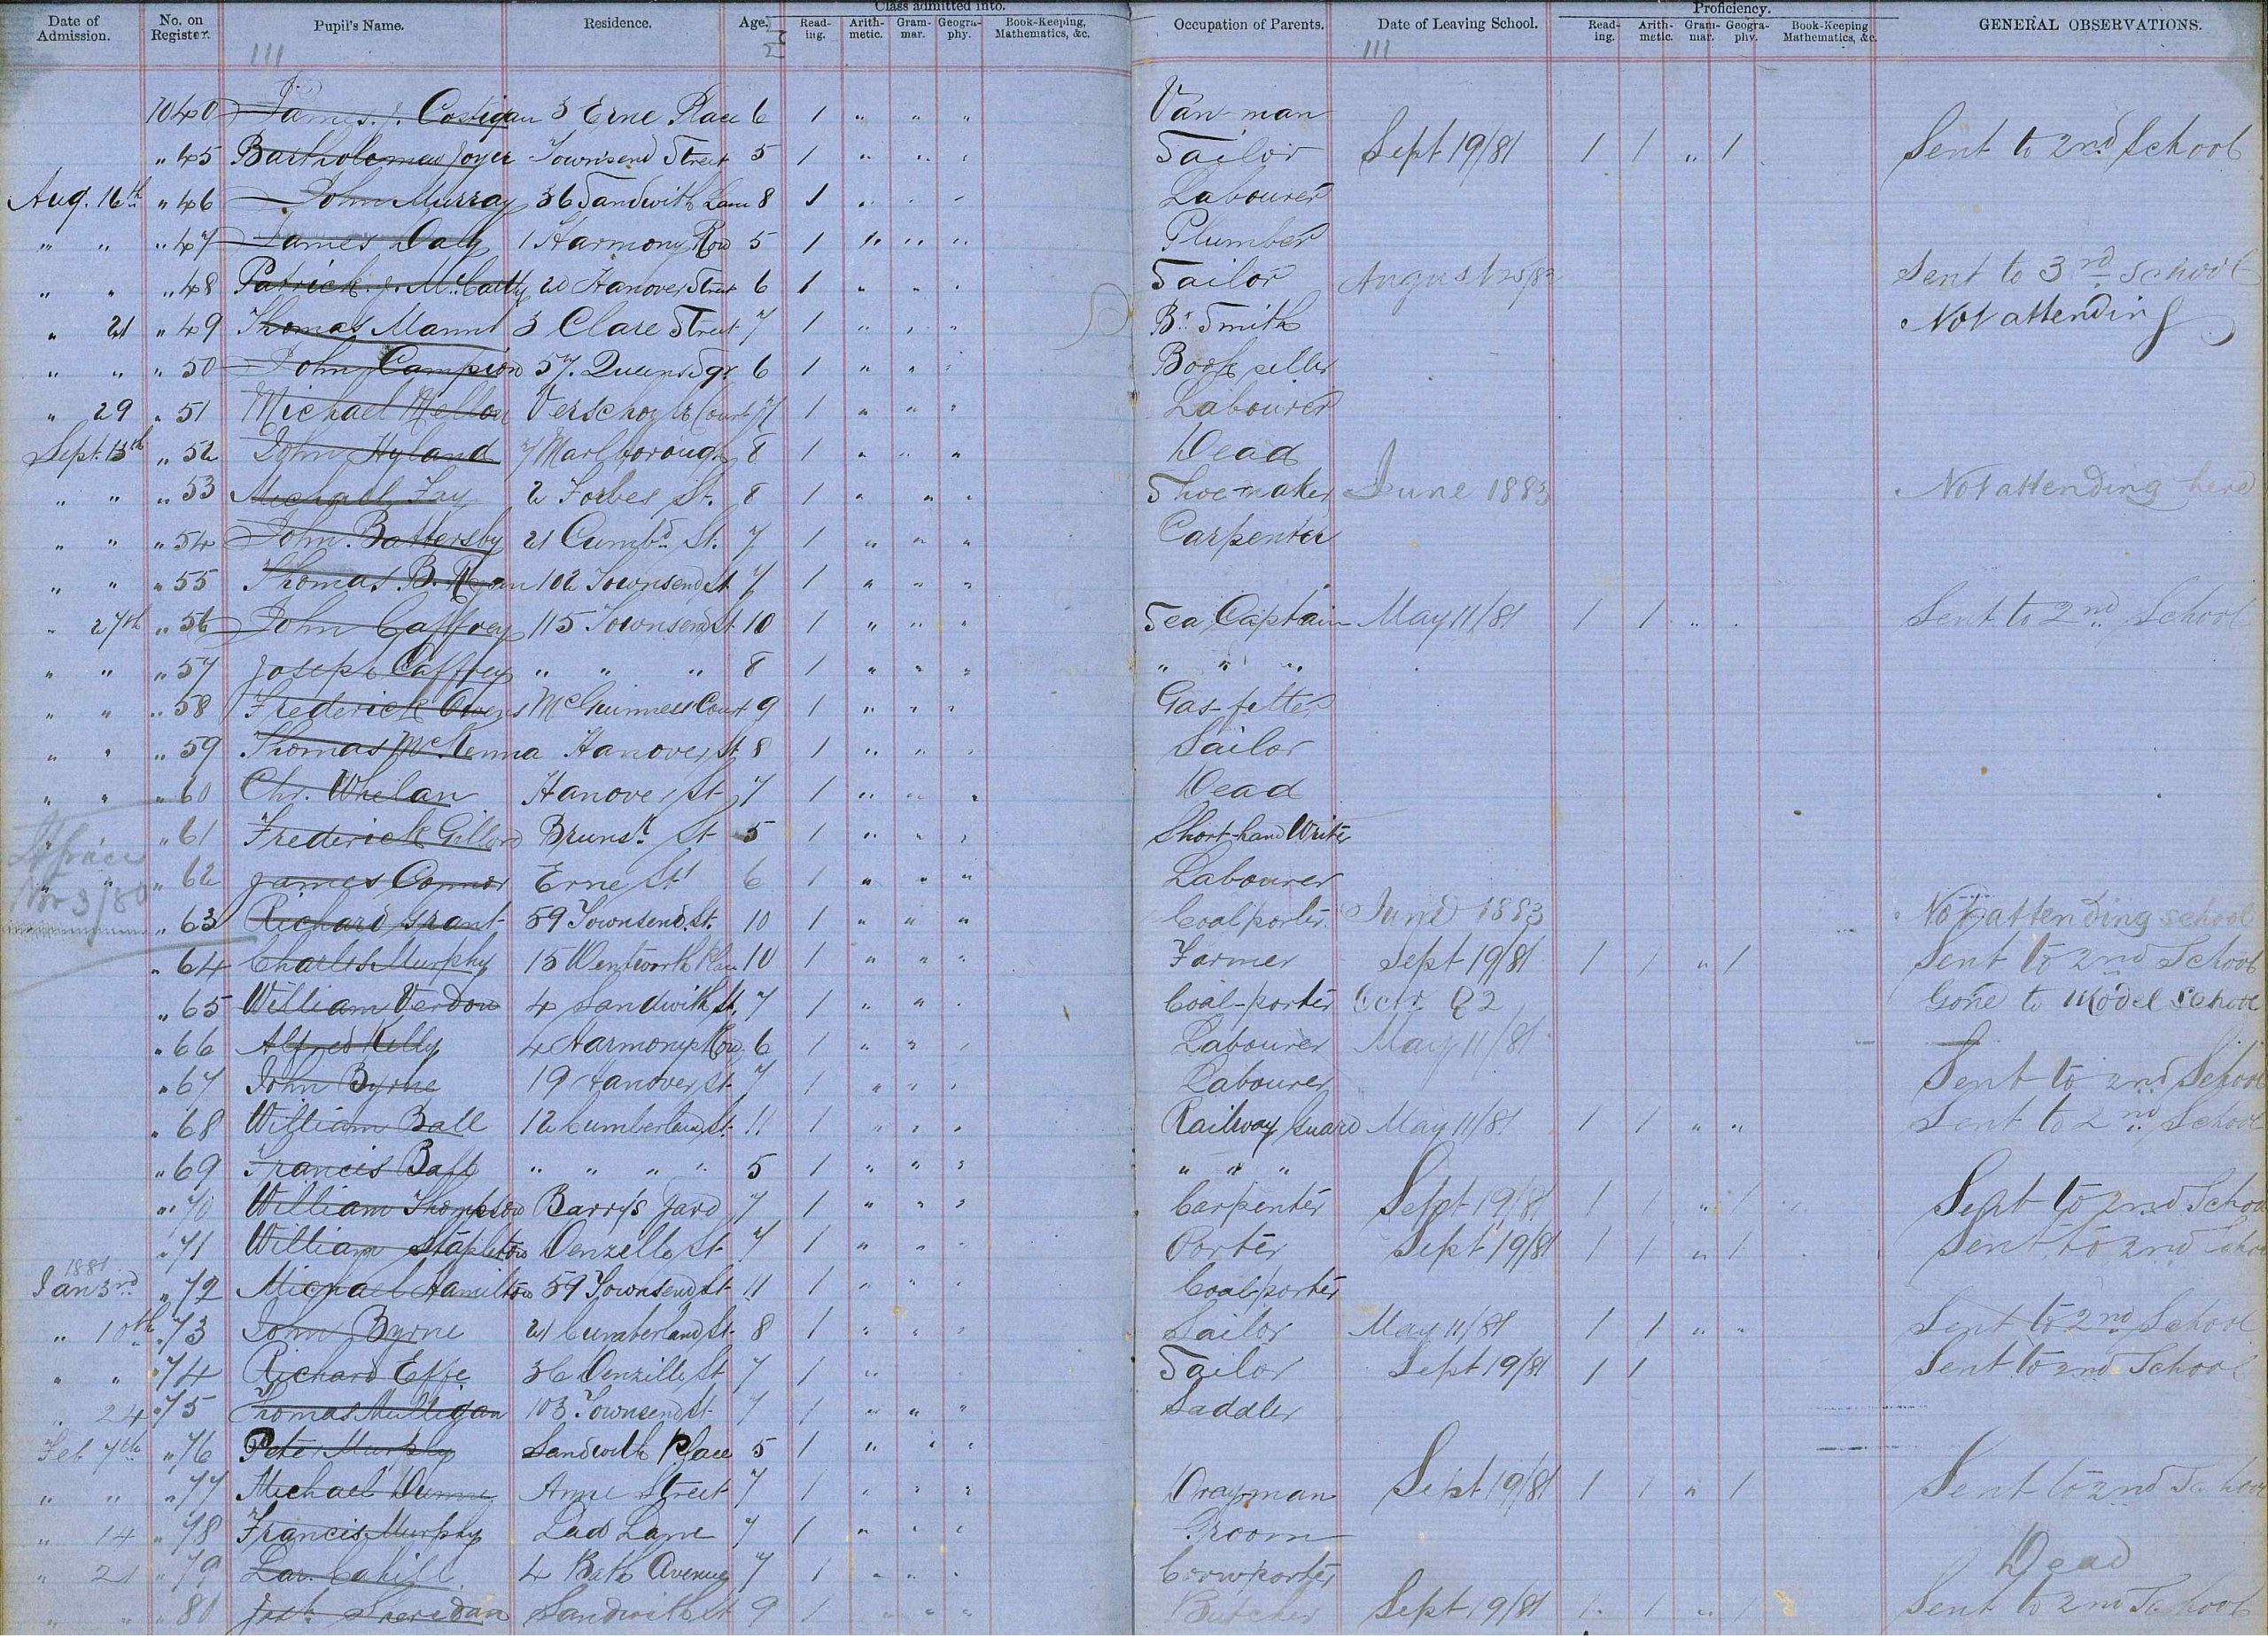 Class admitted into. Proficiency.
Date of Admission. No. on Register. Pupil's Name. Residence. Age. Reading. Arithmetic. Grammar. Geography. Book-Keeping, Mathematics, &c. Occupation of Parents. Date of Leaving School. Reading. Arithmetic. Grammar. Geography. Book-Keeping Mathematics, &c. GENERAL OBSERVATIONS.
111 111
1040 James J. Costigan 3 Erne Place 6 1 " " " Van-man
" 45 Bartholomew Joyce Townsend Street 5 1 " " " Tailor Sept 19/81 1 1 " 1 Sent to 2nd School
Aug. 16th " 46 John Murray 36 Sandwith Lane 8 1 " " " Labourer
" " " 47 James Daly 1 Harmony Row 5 1 " " " Plumber
" " " 48 Patrick J. McCarthy 20 Hanover Street 6 1 " " " Tailor August 25/82 Sent to 3rd School
" 21 " 49 Thomas Mann 3 Clare Street 7 1 " " " Br. Smith Not attending
" " " 50 John Campion 57. Queens Sqr 6 1 " " " Book seller
" 29 " 51 Michael Mellon Verschoyle Court 7 1 " " " Labourer
Sept. 13th " 52 John Hyland 7 Marlborough 8 1 " " " Dead
" " " 53 Michael Fay 2 Forbes St. 8 1 " " " Shoe-maker June 1883 Not attending here
" " " 54 John Battersby 21 Cumbd. St. 7 1 " " " Carpenter
" " " 55 Thomas B. Regan 102 Townsend St 7 1 " " " "
" 27th " 56 John Caffrey 115 Townsend St 10 1 " " " Sea Captain May 11/81 1 1 " " Sent to 2nd School
" " " 57 Joseph Caffrey " " " 8 1 " " " " " "
" " " 58 Frederick Owens McGuinness Court 9 1 " " " Gas-fitter
" " " 59 Thomas McKenna Hanover St 8 1 " " " Sailor
" " " 60 Chr. Whelan Hanover St 7 1 " " " Dead
" " 61 Frederick Gillord Brunsk. St 5 1 " " " Short-hand Writer
" " " 62 James Connor Erne St 6 1 " " " Labourer
Nov 3/80
" 63 Richard Grant 59 Townsend St. 10 1 " " " Coalporter June 1883 Not attending school
" 64 Charles Murphy 15 Wentworth Place 10 1 " " " Farmer Sept 19/81 1 1 " 1 Sent to 2nd School
" 65 William Verdon 4 Sandwith St. 7 1 " " " Coal-porter Octr 82 Gone to Model School
" 66 Alfred Kelly 4 Harmony Row 6 1 " " " Labourer May 11/81
" 67 John Byrne 19 Hanover St 7 1 " " " Labourer Sent to 2nd School
" 68 William Ball 12 Cumberland St. 11 1 " " " Railway Guard May 11/81 1 1 " " Sent to 2nd School
" 69 Francis Ball " " " " 5 1 " " " " " "
" 70 William Thompson Barry's Yard 7 1 " " " Carpenter Sept 19/81 1 1 " 1 Sent to 2nd School
" 71 William Stapleton Denzelle St 7 1 " " " Porter Sept 19/81 1 1 " 1 Sent to 2nd School
1881
Jan 3rd " 72 Michael Hamilton 59 Townsend St 11 1 " " " Coalporter
" 10th " 73 John Byrne 21 Cumberland St. 8 1 " " " Sailor May 11/81 1 1 " " Sent to 2nd School
" " " 74 Richard Effe 36 Denzille St 7 1 " Tailor Sept 19/81 1 1 Sent to 2nd School
" 24 " 75 Thomas Mulligan 103 Townsend St 7 1 " " " Saddler
Feb 7th " 76 Peter Murphy Sandwith Place 5 1 " " "
" " " 77 Michael Dunne Anne Street 7 1 " " " Drayman Sept 19/81 1 1 " 1 Sent to 2nd School
" 14 " 78 Francis Murphy Lad Lane 7 1 " " " Groom
" 21 " 79 Lar. Cahill 4 Bath Avenue 7 1 " " " Cornporter Dead
" " " 80 Josh. Sheridan Sandwith St 9 1 " " " Butcher Sept 19/81 1 1 " 1 Sent to 2nd School